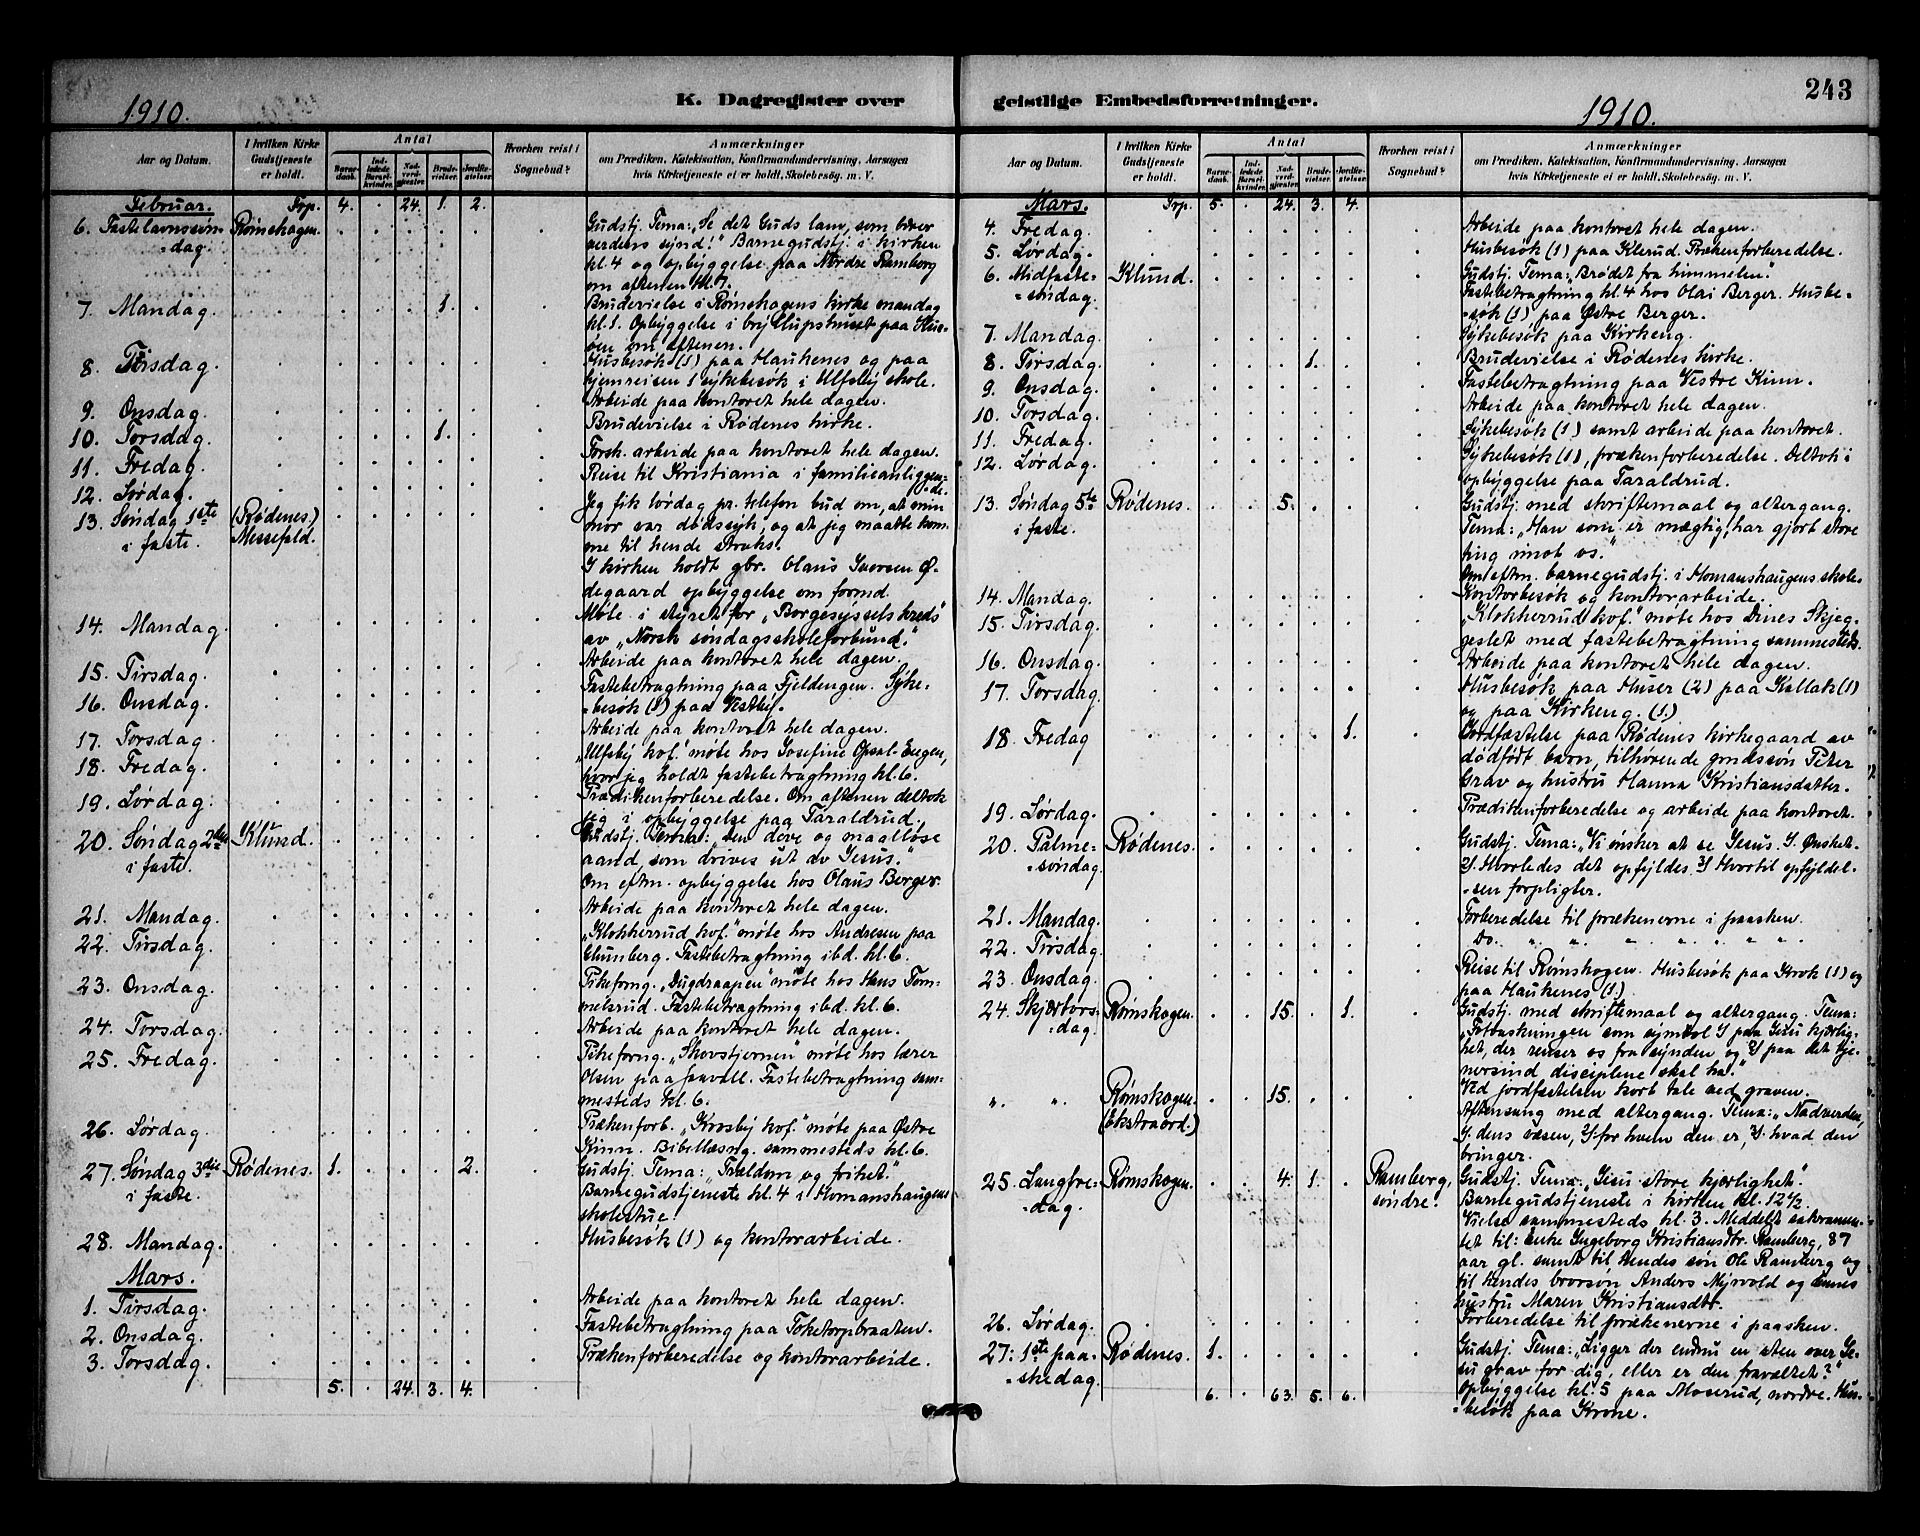 1910.
K. Dagregister over
Aar og Datum.
I hvilken Kirke Gudstjeneste er holdt.
Antal
Barnedaab.
Indledede Barselkvinder.
Nadverdgjester.
Brudevielser.
Jordfæstelser.
Hvorhen reist i Sognebud?
Anmærkninger
om Prædiken, Katekisation, Konfirmandundervisning, Aarsagen
hvis Kirketjeneste ei er holdt, Skolebesøg, m. V.
Februar. Trp. 4. . 24. 1. 2.
6. Fastelavnssøn- Rømskogen. Gudstj. Tema: „Se det Guds lam, som bærer
-dag. verdens synd!" Barnegudstj. i kirken
kl. 4 og opbyggelse paa Nordre Ramberg
om aftenen kl. 7.
7. Mandag. 1. Brudevielse i Rømskogens kirke mandag
kl. 1. Opbyggelse i bryllupshuset paa
om aftenen.
8. Tirsdag. Husbesøk (1) paa Haukenes og paa
hjemreisen 1 sykebesøk i Ulfsby skole.
9. Onsdag. Arbeide paa kontoret hele dagen.
10. Torsdag. 1. Brudevielse i Rødenes kirke.
11. Fredag. Forsk. arbeide paa kontoret hele dagen.
12. Lørdag. Reise til Kristiania i familieanliggen-
-de.
13. Søndag 1ste (Rødenes.) Jeg fik lørdag pr. telefon bud om, at min
i faste. Messefald. mor var dødssyk, og at jeg maatte kom-
me til hende straks.
I kirken holdt gbr. Olaus Iversen Ø-
degaard opbyggelse om formd.
14. Mandag. Møte i styret for „Borgesyssels kreds"
av „Norsk søndagsskoleforbund."
15. Tirsdag. Arbeide paa kontoret hele dagen.
16. Onsdag. Fastebetragtning paa Fjeldengen. Syke-
-besøk (1) paa Vestby.
17. Torsdag. Arbeide paa kontoret hele dagen.
18. Fredag. „Ulfsby kof." møte hos Josefine Opsal-Engen,
hvor jeg holdt fastebetragtning kl. 6.
19. Lørdag. Prædikenforberedelse. Om aftenen deltok
jeg i opbyggelse paa Taraldrud.
20. Søndag 2den Klund. Gudstj. Tema: Den døve og maalløse
i faste. aand, som drives ut av Jesus."
Om eftm. opbyggelse hos Olaus Berger.
21. Mandag. Arbeide paa kontoret hele dagen.
22. Tirsdag. „Klokkerrud kof." møte hos Andresen paa
Fastebetragtning ibd. kl. 6.
23. Onsdag. Pikeforng. „Dugdraapen" møte hos Hans Tom-
melsrud. Fastebetragtning ibd. kl. 6.
24. Torsdag. Arbeide paa kontoret hele dagen.
25. Fredag. Pikeforng. „Skovstjernen" møte hos lærer
Olsen paa Fastebetragtning sam-
mesteds kl. 6.
26. Lørdag. Prækenforb. „Krosby kof." møte paa Østre
Kinn. Bibellæsng. sammesteds kl. 6.
27. Søndag 3die Rødenes. 1. 2. Gudstj. Tema: „Trældom og frihet."
i faste. Barnegudstjeneste kl. 4 i Homanshaugens
skolestue.
28. Mandag. Husbesøk (1) og kontorarbeide.
Mars.
1. Tirsdag. Arbeide paa kontoret hele dagen.
2. Onsdag. Fastebetragtning paa Toketorpbraaten.
3. Torsdag. Prækenforberedelse og kontorarbeide.
5. . 24. 3. 4.
geistlige Embedsforretninger.
1910.
243
Aar og Datum.
I hvilken Kirke Gudstjeneste er holdt.
Antal
Barnedaab.
Indledede Barselkvinder.
Nadverdgjester.
Brudevielser.
Jordfæstelser.
Hvorhen reist i Sognebud?
Anmærkninger
om Prædiken, Katekisation, Konfirmandundervisning, Aarsagen
hvis Kirketjeneste ei er holdt, Skolebesøg, m. V.
Mars. Trp. 5. . 24. 3. 4.
4. Fredag. Arbeide paa kontoret hele dagen.
5. Lørdag. Husbesøk (1) paa Klerud. Prækenforberedelse.
6. Midfaste- Klund. Gudstj. Tema: „Brødet fra himmelen."
-søndag. Fastebetragtng. kl. 4 hos Olai Berger. Husbe-
-søk (1) paa Østre Berger.
7. Mandag. Sykebesøk paa Kirkeng.
8. Tirsdag. 1. Brudevielse i Rødenes kirke.
9. Onsdag. Fastebetragtning paa Vestre Kinn.
10. Torsdag. Arbeide paa kontoret hele dagen.
11. Fredag. Sykebesøk (1) samt arbeide paa kontoret.
12. Lørdag. Sykebesøk (1), prækenforberedelse. Deltok i
opbyggelse paa Taraldrud.
13. Søndag 5te Rødenes. 5. Gudstj. med skriftemaal og altergang.
i faste. Tema: „Han som er mægtig, har gjort store
ting imot os."
Om eftm. barnegudstj. i Homanshaugens skole.
14. Mandag. Kontorbesøk og kontorarbeide.
15. Tirsdag. „Klokkerrud kof." møte hos Dines Skjeg-
gestet med fastebetragtning sammesteds.
16. Onsdag. Arbeide paa kontoret hele dagen.
17. Torsdag. Husbesøk paa Huser (2) paa Kallak (1)
og paa Kirkeng. (1)
18. Fredag 1. Jordfæstelse paa Rødenes kirkegaard av
dødfødt barn, tilhørende grdssøn Peter
Grav og hustru Hanna Kristiansdatter.
19. Lørdag. Prædikenforberedelse og arbeide paa kontoret.
20. Palme- Rødenes. Gudstj. Tema: „Vi ønsker at se Jesus. 1) Ønsket
-søndag. 2) Hvorledes det opfyldes 3) Hvortil opfyldel-
-sen forpligter.
21. Mandag. Forberedelse til prækenerne i paasken.
22. Tirsdag. Do. „ „ „ „ „ „ „
23. Onsdag. Reise til Rømskogen. Husbesøk paa Krok (1) og
paa Haukenes (1.)
24. Skjærtors- Rømskogen. 15. 1. Gudstj. med skriftemaal og altergang. Tema:
-dag. „Fotvaskningen som symbol 1) paa Jesu kjærlig-
het, der renser os fra synden og 2) paa det tje-
nersind disciplene skal ha."
Ved jordfæstelsen kort tale ved graven.
„ „ Rømskogen. 15. Aftensang med altergang. Tema: „Nadverden,
(Ekstraord.) 1) dens væsen, 2) for hvem den er, 3) hvad den
bringer.
25. Langfre- Rømskogen. 4. 1. Ramberg, Gudstj. Tema: „Jesu store kjærlighet".
-dag. søndre. Barnegudstjeneste i kirken kl. 12½.
Vielse sammesteds kl. 3. Meddelt sakramen-
tet til: Enke Ingeborg Kristiansdtr. Ramberg, 87
aar gl. samt til hendes søn Ole Ramberg og
til hendes brorsøn Anders Myrvold og dennes
hustru Maren Kristiansdtr.
26. Lørdag. Forberedelse til prækenerne i paasken.
27. 1ste paa- Rødenes. 1. Gudstj. Tema: „Ligger der endnu en sten over Je-
-skedag. su grav for dig, eller er den fravæltet?"
Opbyggelse kl. 5 paa Moserud, nordre. Hus-
6. . 63. 5. 6. -besøk paa Krone.